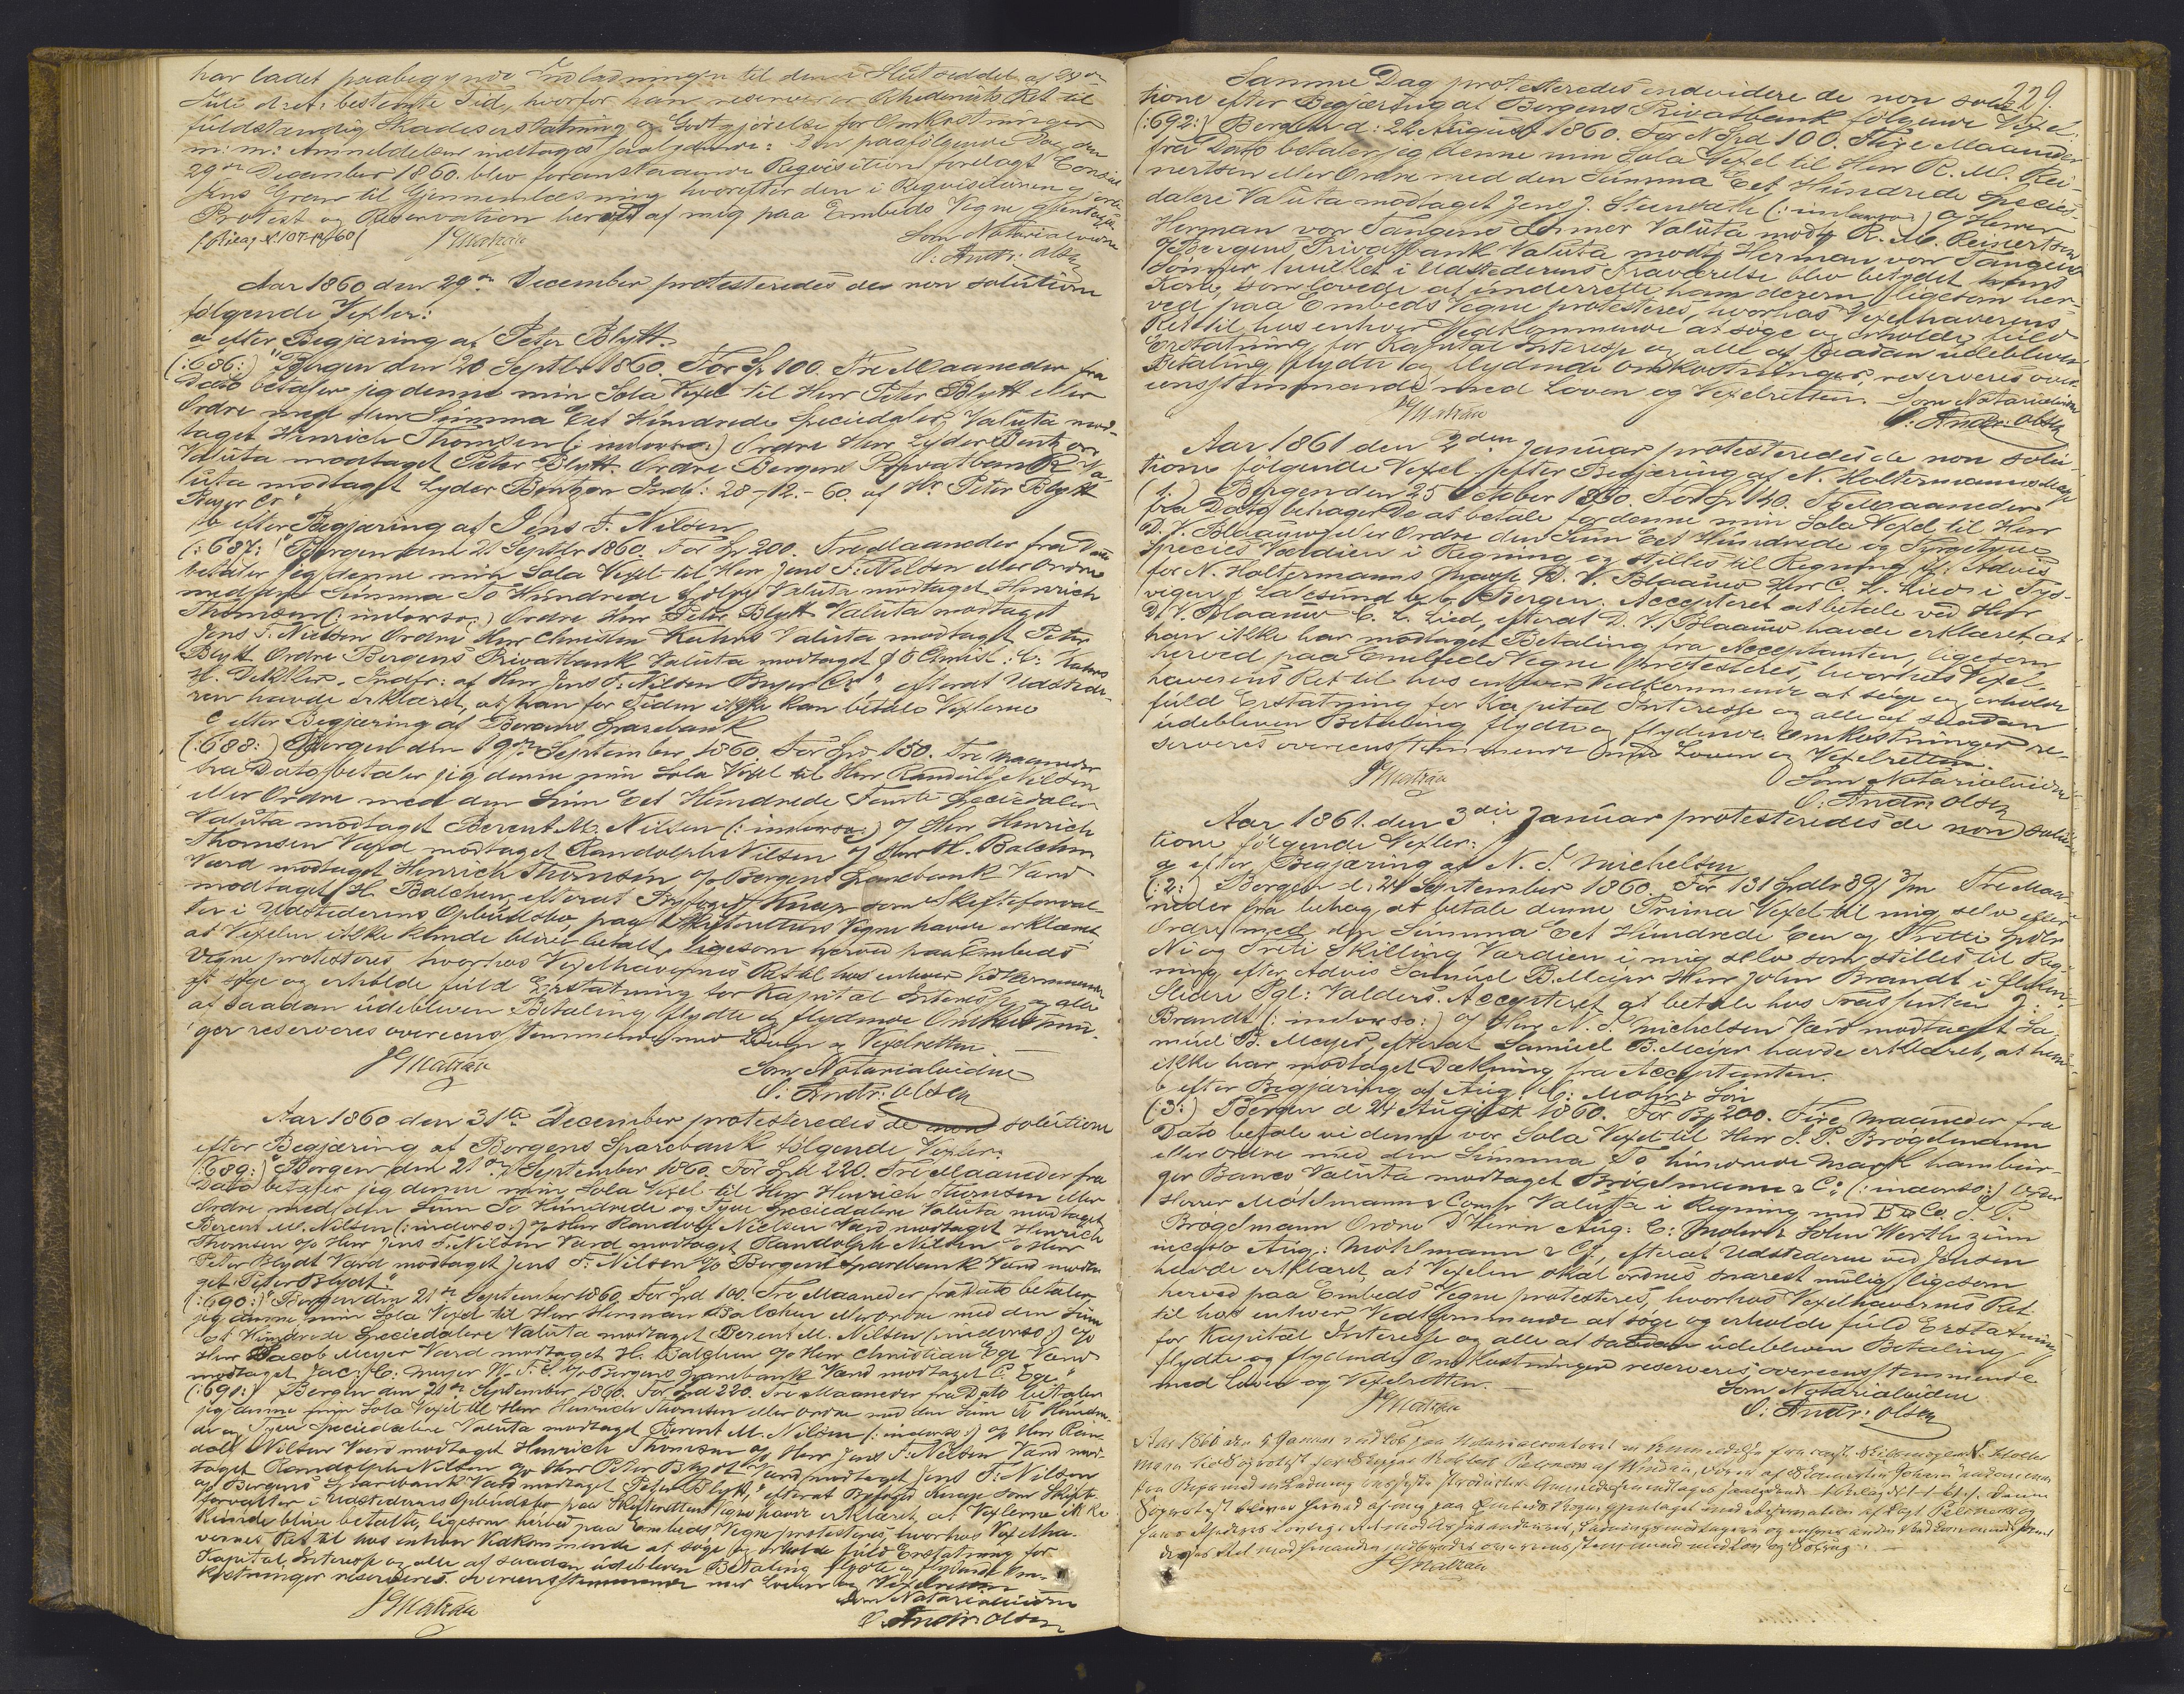 har ladet paabegynde Indladningen til den i Slutseddel af 29de
Juli d: A: bestemte Tid, hvorfor han reserverer Rhederiets Ret til
fuldstændig Skadeserstatning og Godtgjörelse for Omkostninger
m: m: Anmeldelsen indtages saalydende: Den paafölgende Dag den
29de December 1860. blev foranstaaende Reqvisition forelagt Consul
Jens Gran til Gjennemlæsning hvorefter den i Reqvisitionen gjorte
Protest og Reservation herved af mig paa Embeds Vegne gjentages
(Bilag N: 107-1860) JGMatzau Som Notarialvidne
O: Andr: Olsen
Aar 1860 den 29de December protesteredes de non solutione
fölgende Vexler:
a efter Begjæring af Peter Blytt.
(:686:) "Bergen den 20 Septbr 1860. For Sp 100. Tre Maaneder fra
Dato betaler jeg denne min Sola Vexel til Herr Peter Blytt eller
Ordre med den Summa Eet Hundrede Speciedaler Valuta mod-
taget Hinrich Thomsen (: indorso:) Ordre Herr Lyder Bentzon
Valuta modtaget Peter Blytt. Ordre Bergens Privatbank Va-
luta modtaget Lyder Bentzon Indf: 28-12-60. af Hr. Peter Blytt
Beyer Cs"
b efter Begjæring af Jens F. Nilsen
(:687:) "Bergen den 21 Septbr 1860. For Sp 200. Tre Maaneder fra Dato
betaler jeg denne min Sola Vexel til Herr Jens F: Nilsen eller Ordre
med den Summa To Hundrede Spd Valuta modtaget Hinrich
Thomsen (: indorso:) Ordre Herr Peter Blytt Valuta modtaget
Jens F. Nielsen Ordre Herr Christian Kahrs Valuta modtaget Peter
Blytt Ordre Bergens Privatbank Valuta modtaget Christ: C: Kahrs
Indfr: af Herr Jens F: Nilsen Beyer Cs", efterat Udstede-
ren havde erklæret, at han for Tiden ikke kan betale Vexlerne
c efter Begjæring af Bergens Sparebank
(:688:) "Bergen den 19de September 1860. For Spd 150. Tre Maaneder
fra Dato betaler jeg denne min Sola Vexel til Herr Randulf Nilsen
eller Ordre med den Sum Eet Hundrede Femti Speciedaler
Valuta modtaget Berent M. Nilsen (: indorso:) o/ Herr Hinrich
Thomsen Værd modtaget Randolph Nilsen o/ Herr H. Balchen
Værd modtaget Hinrich Thomsen o/ Bergens Sparebank Værd
modtaget H. Balchen, efterat Byfoged Knap som Skifteforval-
ter i Udstederens Opbudsbo, paa Skifterettens Vegne havde erklæret
at Vexelen ikke kunde blive betalt, ligesom herved paa Embeds
Vegne protesteres hvorhos Vexelhavernes Ret til hos enhver Vedkommende
at söge og erholde fuld Erstatning for Kapital Interesse og alle
af saadan udebleven Betaling flydte og flydende Omkostnin-
ger reserveres overeensstemmende med Loven og Vexelretten.
JGMatzau Som Notarialvidne
O: Andr: Olsen
Aar 1860 den 31te December protesteredes de non solutione
efter Begjæring af Bergens Sparebank fölgende Vexler:
(:689:) "Bergen den 21de September 1860. For Spd 220. Tre Maaneder fra
Dato betaler jeg denne min Sola Vexel til Herr Hinrich Thomsen eller
Ordre med den Sum To Hundrede og Tyve Speciedalere Valuta modtaget
Berent M. Nilsen (: indorso:) o/ Herr Randolf Nielsen Værd modtaget Hinrich
Thomsen o/ Herr Jens F. Nilsen Værd modtaget Randolph Nilsen o/ Herr
Peter Blydt Værd modtaget Jens F. Nilsen o/ Bergens Sparebank Værd modta-
get Peter Blydt."
(:690:) "Bergen den 21de September 1860. For Spd 100. Tre Maaneder fra Dato betaler
jeg denne min Sola Vexel til Herr Herman Balchen eller Ordre med den Sum
et Hundrede Speciedalere Valuta modtaget Berent M. Nilsen (indorso:) o/
Herr Jacob Meyer Værd modtaget H. Balchen o/ Herr Christian Ege Værd
modtaget Jac: C: Meyer o/ Bergens Sparebank Værd modtaget C. Ege."
(:691:) Bergen den 21de September 1860. For Spd 220. Tre Maaneder fra Dato betaler
jeg denne min Sola Vexel til Herr Hinrich Thomsen eller Ordre med den Sum To Hundre-
de og Tyve Speciedalere Valuta modtaget Berent M. Nilsen (: indorso:) o/ Herr Ran-
dolf Nilsen Værd modtaget Hinrich Thomsen o/ Herr Jens F: Nilsen Værd mod-
taget Randolph Nilsen o/ Herr Peter Blydt Værd modtaget Jens F: Nilsen
o/ Bergens Sparebank Værd modtaget Peter Blytt," efterat Byfoged Knap som Skifte-
forvalter i Udstederens Opbudsbo paa Skifterettens Vegne havde erklæret, at Vexlerne ikke
kunde blive betalte, ligesom herved paa Embeds Vegne protesteres hvorhos Vexelha-
vernes Ret til hos enhver Vedkommende at söge og erholde fuld Erstatning for
Kapital, Interesse og alle af saadan udebleven Betaling flydte og flydende Om-
kostninger reserveres overeensstemmende med Loven og Vexelretten
JGMatzau Som Notarialvidne
O. Andr: Olsen
229.
Samme Dag protesteredes endvidere de non solu-
tione efter Begjæring af Bergens Privatbank fölgende Vexel:
(:692:) Bergen d: 22 August 1860. For N Spd 100. Fire Maaneder
fra Dato betaler jeg denne min Sola Vexel til Herr R. M. Rei-
nertsen eller Ordre med den Summa Eet Hundrede Species-
dalere Valuta modtaget Jens J. Steensæth (: indorso:) o/ Herrer
Herman von Tangens Sönner Valuta modtg R. M. Reinertsen
o/ Bergens Privatbank Valuta modtg Herman von Tangens
Sönner, hvilket i Udstederens Fraværelse blev betydet hans
Kone, som lovede at underrette ham derom, ligesom her-
ved paa Embeds Vegne protesteres, hvorhos Vexelhaverens
Ret til hos enhver Vedkommende at söge og erholde fuld
Erstatning for Kapital Interesse og alle af saadan udebleven
Betaling flydte og flydende Omkostninger, reserveres over-
eensstemmende med Loven og Vexelretten. Som Notarialvidne
JGMatzau O: Andr: Olsen
Aar 1861 den 2den Januar protesteredes de non solu-
tione fölgende Vexel efter Begjæring af N. Holtermanns Masse
(1:) Bergen den 25 October 1860. For Sp 140. To Maaneder
fra Dato behager De at betale for denne min Sola Vexel til Herr
D. V. Blaauw eller Ordre den Sum Eet Hundrede og Fyrgetyve
Species Værdien i Regning og stilles til Regning pr. Advis
for N. Holtermanns Masse D. V. Blaauw Herr C. L. Lied i Fys-
vigen p Aalesund b. b. Bergen. Accepteret at betale ved Herr
D. V. Blaauw C. L. Lied, efterat D. V. Blaauw havde erklæret at
han ikke har modtaget Betaling fra Acceptanten, ligesom
herved paa Embeds Vegne protesteres, hvorhos Vexel-
haverens Ret til hos enhver Vedkommende at söge og erholde
fuld Erstatning for Kapital Interesse og alle af saadan
udebleven Betaling flydte og flydende Omkostninger re-
serveres overeensstemmende med Loven og Vexelretten.
JGMatzau Som Notarialvidne
O: Andr: Olsen
Aar 1861. den 3die Januar protesteredes de non solu-
tione fölgende Vexler:
a efter Begjæring af N. S. Michelsen
(:2:) Bergen d: 24 September 1860. For 131 Spdlr 89 ß 3/m Tre Maa-
neder fra behag at betale denne Prima Vexel til mig selv eller
Ordre med den Summa Eet Hundrede Een og Tretti Spdlr
Ni og Otti Skilling Værdien i mig selv som stilles til Reg-
ning efter Advis Samuel B. Meijer Herr John Brandt i
Slidre Pgl: Valders. Accepteret at betale hos Trassenten J:
Brandt (: indorso:) o/ Herr N. S. Michelsen Værd modtaget Sa-
muel B. Meyer, efterat Samuel B. Meijer havde erklæret, at han
ikke har modtaget Dækning fra Acceptanten.
b efter Begjæring af Aug: C: Mohr & Sön
(:3:) Bergen d 24 August 1860. For Bz 200. Fire Maaneder fra
Dato betale vi denne vor Sola Vexel til Herr J. P. Brögelmann
eller Ordre med den Summa To hundrede Mark hambur-
ger Banco Valuta modtaget Brögelmann & Co. (: indorso:) Order
Herrer Möhlmann & Comp Valuta i Regning med B & Co J. P.
Brögelmann Ordre D'Herrn Aug: C: Mohr & Sohn Werth zum
incasso Aug: Möhlmann & Co, efterat Udstederne ved Jensen
havde erklæret, at Vexelen skal ordnes snarest mulig, ligesom
herved paa Embeds Vegne protesteres, hvorhos Vexelhavernes Ret
til hos enhver Vedkommende at söge og erholde fuld Erstatning
for Kapital Interesse og alle af saadan udebleven Betaling
flydte og flydende Omkostninger reserveres overeensstemmende
med Loven og Vexelretten.
JGMatzau Som Notarialvidne
O: Andr: Olsen
Aar 1860 den 5 Januar indkom paa Notarialcontoret en Anmeldelse fra
af Windau, Förer af Johann
fra Riga med en Ladning Anmeldelsen indtages saalydende
bliver herved af mig paa Embeds Vegne gjentaget med Reservation af Capt. og
JGMatzau